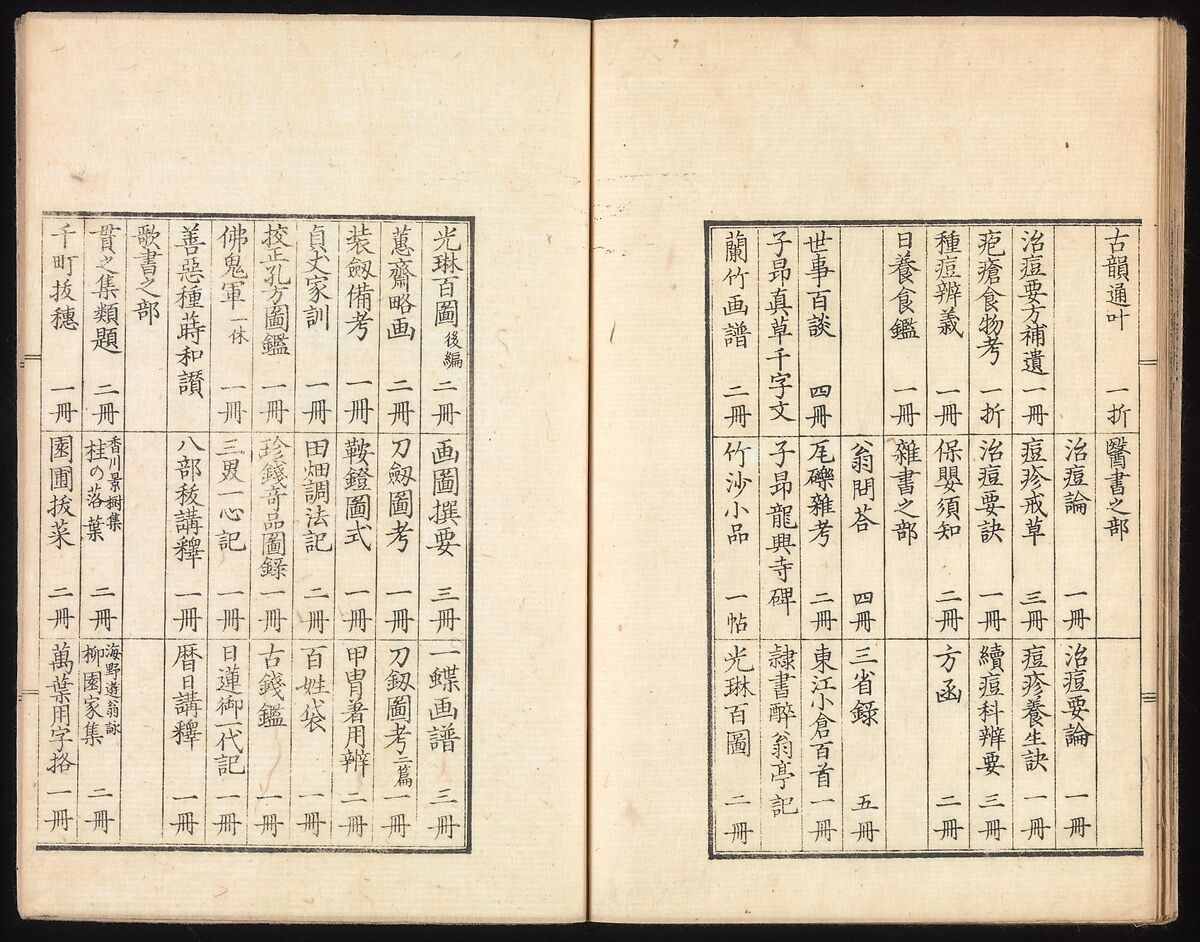 古韻通叶 一折 醫書之部
治痘論 一冊 治痘要論 一冊
治痘要方補遺 一冊 痘疹戒草 三冊 痘疹養生訣 一冊
疱瘡食物考 一折 治痘要訣 一冊 續痘科辨要 三冊
種痘辨義 一冊 保嬰須知 二冊 方函 二冊
日養食鑑 一冊 雜書之部
翁問荅 四冊 三省録 五冊
世事百談 四冊 瓦礫雜考 二冊 東江小倉百首 一冊
子昂真草千字文 子昂龍興寺碑 隷書醉翁亭記
蘭竹画譜 二冊 竹沙小品 一帖 光琳百圖 二冊
光琳百圖 後編 二冊 画圖撰要 三冊 一蝶画譜 三冊
蕙齋略画 二冊 刀劔圖考 一冊 刀劔圖考 二篇 一冊
装劔備考 一冊 鞍鐙圖式 一冊 甲冑着用辨 二冊
貞丈家訓 一冊 田畑調法記 二冊 百姓袋 一冊
挍正孔方圖鑑 一冊 珍錢奇品圖録 一冊 古錢鑑 一冊
佛鬼軍 一休 一冊 三界一心記 一冊 日蓮御一代記 一冊
善惡種蒔和讃 八部秡講釋 一冊 暦日講釋 一冊
歌書之部
貫之集類題 二冊 香川景樹集 桂の落葉 二冊 海野遊翁詠 柳園家集 二冊
千町抜穗 一冊 園圃抜菜 二冊 萬葉用字格 一冊